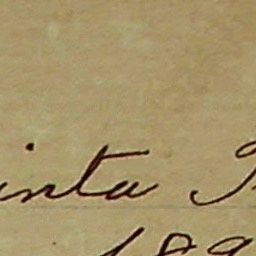 inta
189